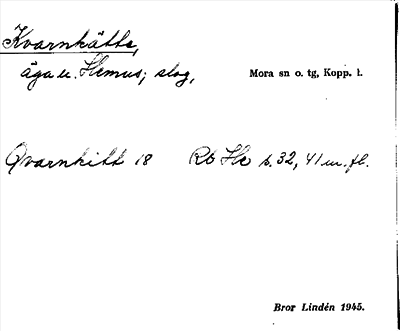 Kvarnkätte,
äga u. Hemus; slog,
Mora sn o. tg, Kopp. l.
Qvarnkitt 18 Rb He s. 32, 41 m. fl.
Bror Lindén 1945.